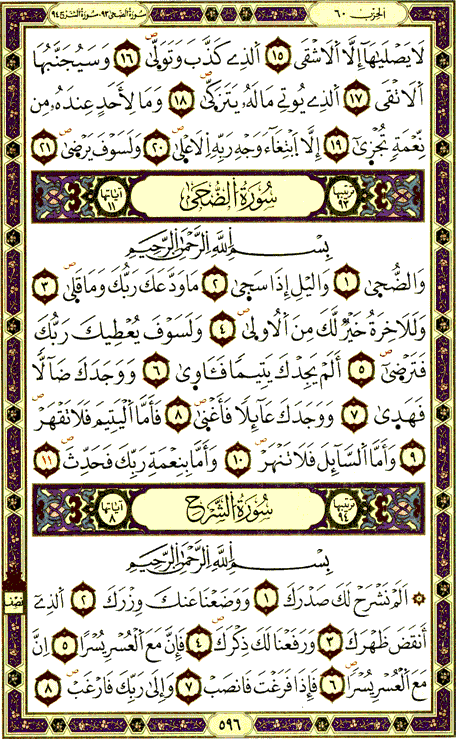 الحزب ٦٠
سورة الضحى ٩٣، سورة الشرح ٩٤
لَا يَصْلَيٰهَآ إِلَّا اَلَاشْقَى ١٥ اَلذِے كَذَّبَ وَتَوَلّٰى ١٦ وَسَيُجَنَّبُهَا
اَلَاتْقَى ١٧ اَلذِے يُوتِے مَالَهُۥ يَتَزَكّٰى ١٨ وَمَا لِأَحَدٍ عِندَهُۥ مِن
نِّعْمَةٍ تُجْزٰىٓ ١٩ إِلَّا اَبْتِغَآءَ وَجْهِ رَبِّهِ اِلَاعْلٰى ٢٠ وَلَسَوْفَ يَرْضٰى ٢١
ترتيبها ٩٣ سُورَةُ الضُّحَىٰ آياتها ١١
بِسْمِ اللَّهِ الرَّحْمَٰنِ الرَّحِيمِ
وَالضُّحٰى ١ وَاليْلِ إِذَا سَجٰى ٢ مَا وَدَّعَكَ رَبُّكَ وَمَا قَلٰى ٣
وَلَلَاخِرَةُ خَيْرٌ لَّكَ مِنَ اَلُاولٰى ٤ وَلَسَوْفَ يُعْطِيكَ رَبُّكَ
فَتَرْضٰىٓ ٥ أَلَمْ يَجِدْكَ يَتِيمًا فَـَٔاوٰى ٦ وَوَجَدَكَ ضَآلًّا
فَهَدٰى ٧ وَوَجَدَكَ عَآئِلًا فَأَغْنٰى ٨ فَأَمَّا اَلْيَتِيمَ فَلَا تَقْهَرْ
٩ وَأَمَّا اَلسَّآئِلَ فَلَا تَنْهَرْ ١٠ وَأَمَّا بِنِعْمَةِ رَبِّكَ فَحَدِّثْ ١١
ترتيبها ٩٤ سُورَةُ الشَّرْحِ آياتها ٨
بِسْمِ اللَّهِ الرَّحْمَٰنِ الرَّحِيمِ
أَلَمْ نَشْرَحْ لَكَ صَدْرَكَ ١ وَوَضَعْنَا عَنكَ وِزْرَكَ ٢ اَلذِےٓ
نصف
أَنقَضَ ظَهْرَكَ ٣ وَرَفَعْنَا لَكَ ذِكْرَكَ ٤ فَإِنَّ مَعَ اَلْعُسْرِ يُسْرًا ٥ اِنَّ
مَعَ اَلْعُسْرِ يُسْرًا ٦ فَإِذَا فَرَغْتَ فَانصَبْ ٧ وَإِلٰى رَبِّكَ فَارْغَب ٨
٥٩٦